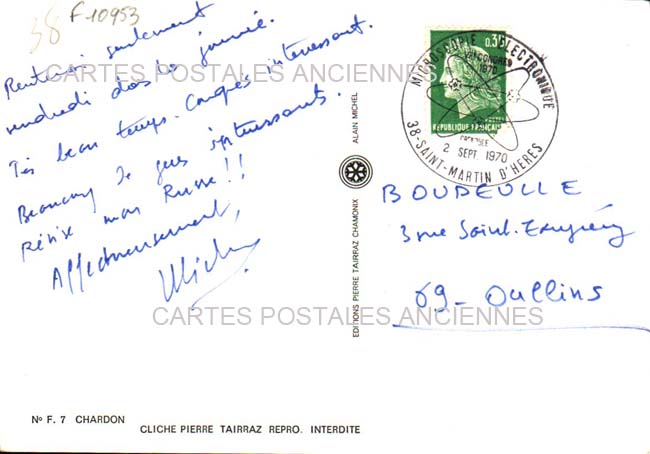 38 F-10953
Rentrerai seulement
vendredi dans la journée.
Très beau temps. Congrès intéressant.
Beaucoup de gens intéressants.
Révise mon Russe!!
Affectueusement,
CARTES POSTALES ANCIENNES
CARTES POSTALES ANCIENNES
Nº F. 7 CHARDON
CLICHE PIERRE TAIRRAZ REPRO. INTERDITE
EDITIONS PIERRE TAIRRAZ CHAMONIX
ALAIN MICHEL
0,30
REPUBLIQUE FRANÇAISE
MICROSCOPIE ELECTRONIQUE
CONGRES
1970
GRENOBLE
2 SEPT 1970
38-SAINT-MARTIN D'HERES
BOUDEULLE
3 rue Saint-
69- Oullins